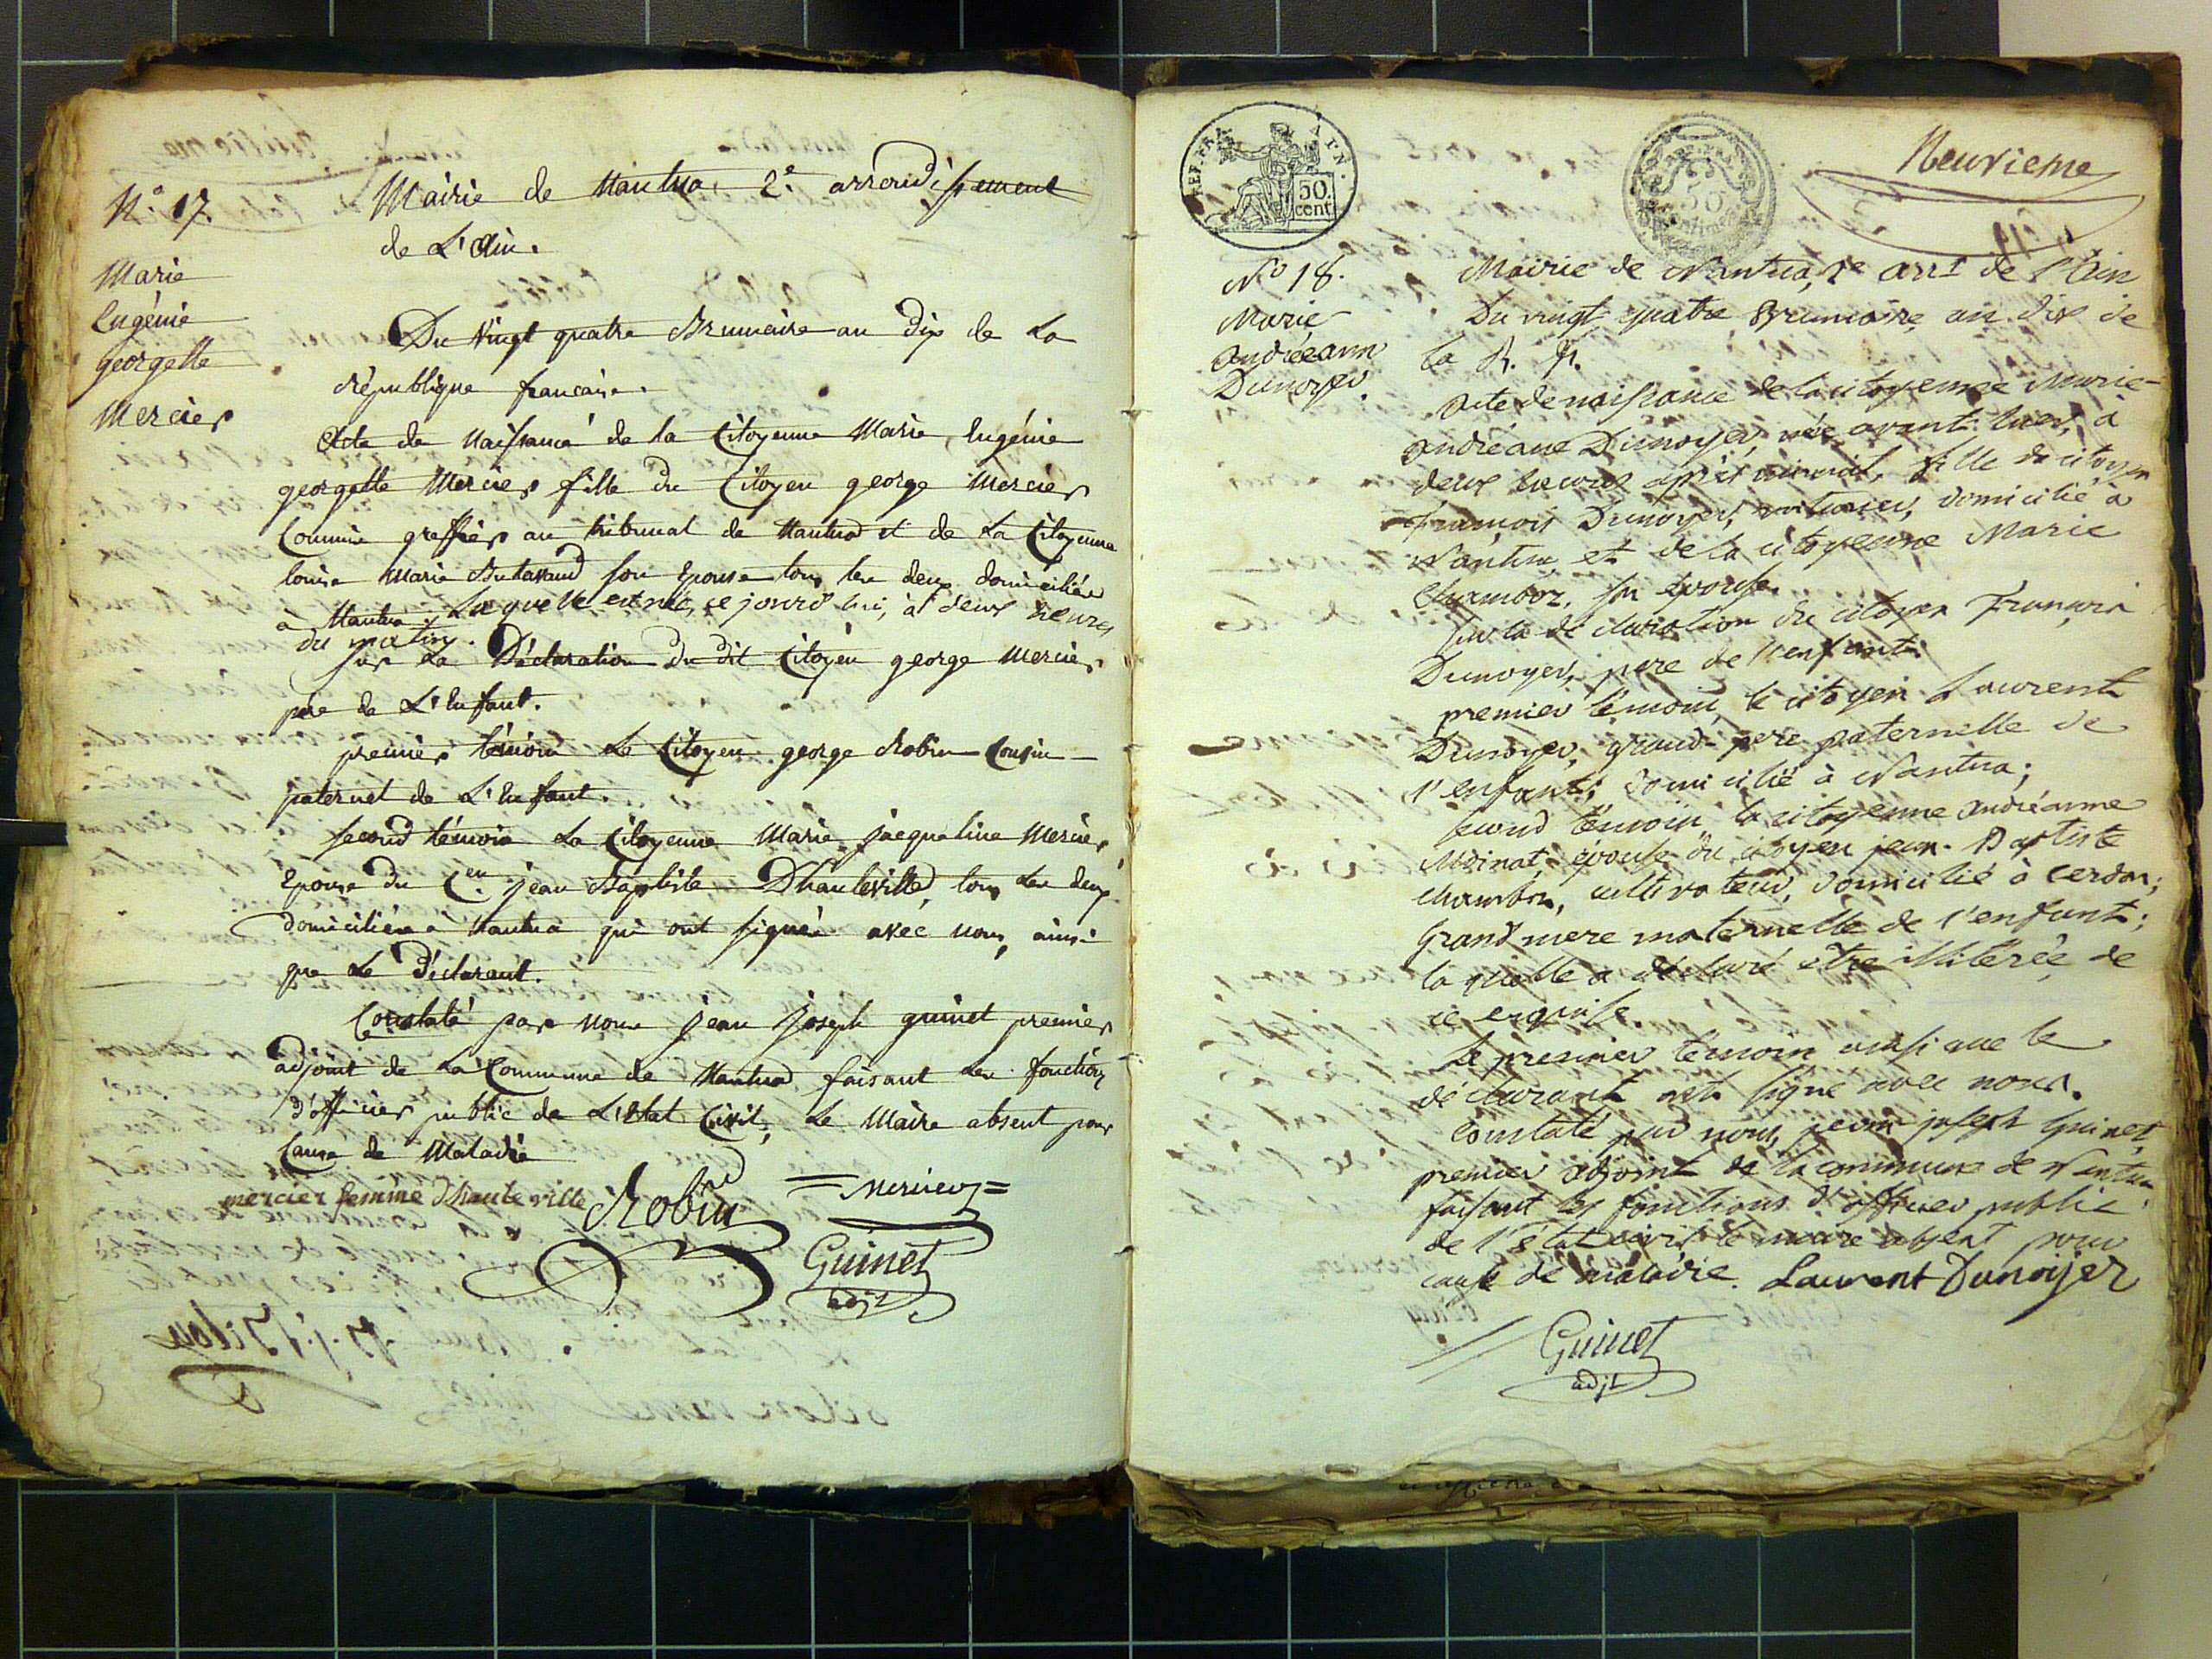 N.o 17.
Marie
Eugénie
georgette
Mercier
Mairie de Nantua, 2.e arrondissement
de L'Ain.
Du Vingt quatre Brumaire an dix de La
République francaise.
Acte de Naissance de la Citoyenne Marie, Eugénie
georgette Mercier fille du Citoyen george Mercier
Commis greffier au tribunal de Nantua et de La Citoyenne
louise Marie Butavand son Epouse tous les deux domiciliés
à Nantua. Laquelle est née, ce jourd'hui, à deux heures
du matin.
Sur La Déclaration du dit Citoyen george Mercier
père de L'Enfant.
premier témoin Le Citoyen george Robin Cousin
paternel de L'Enfant.
second témoin La Citoyenne Marie jacqueline Mercier
Epouse du C.en jean Baptiste Dhauteville, tous Les deux
domiciliés à Nantua qui ont signés avec nous, ainsi
que Le Déclarant.
Constaté par nous jean joseph guinet premier
adjoint de La Commune de Nantua faisant Les fonctions
d'officier public de L'Etat Civil, Le Maire absent pour
Cause de Maladie
mercier femme dhauteville Robin = Mercier =
Guinet
adjt
REP. FRA.
50
cent.
50
Neuvieme
No 18.
Marie
andréanne
Dunoyer.
Mairie de Nantua, 2e arrt de l'Ain
Du vingt quatre Brumaire, an dix de
la R. f.
Acte de naissance de la citoyenne Marie-
andréane Dunoyer, née avant hier, à
deux heures après minuit, fille du citoyen
François Dunoyer, voiturier, domicilié à
Nantua et de la citoyenne Marie
Chambor, son épouse.
Sur la déclaration du citoyen François
Dunoyer, pere de l'enfant.
premier témoin, le citoyen Laurent
Dunoyer, grand-pere paternelle de
l'enfant, domicilié à Nantua;
second témoin la citoyenne andréanne
Moinat, épouse du citoyen jean-Baptiste
Chambor, cultivateur, domicilié à Cerdon;
Grand mere maternelle de l'enfant;
laquelle a déclaré être illiterée, de
ce enquise.
Le premier témoin ainsi que le
déclarant ont signé avec nous.
Constaté par nous, jean joseph Guinet,
premier adjoint de la commune de Nantua
faisant les fonctions d'officier public
de l'état civil le maire absent pour
cause de maladie. Laurent Dunoyer
Guinet
adjt